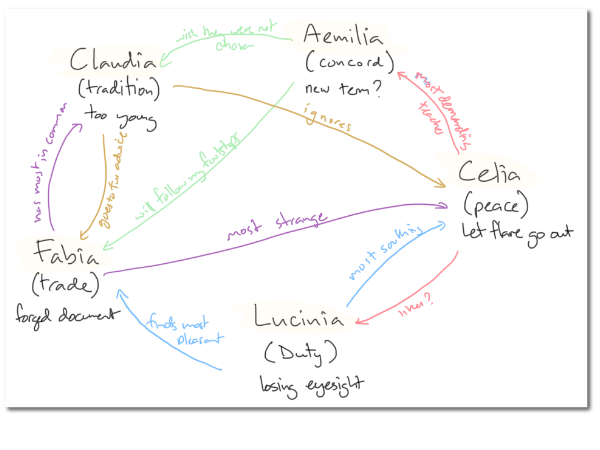 wish they were not
chosen
Aemilia
(concord)
new term?
Claudia
(tradition)
too young
most demanding
teacher
ignores
has most in common
goes to for advice
will following my footsteps
Celia
(peace)
Let flare go out
most strange
Fabia
(trade)
forged document
most soothing
likes?
finds most
pleasant
Lucinia
(Duty)
losing eyesight